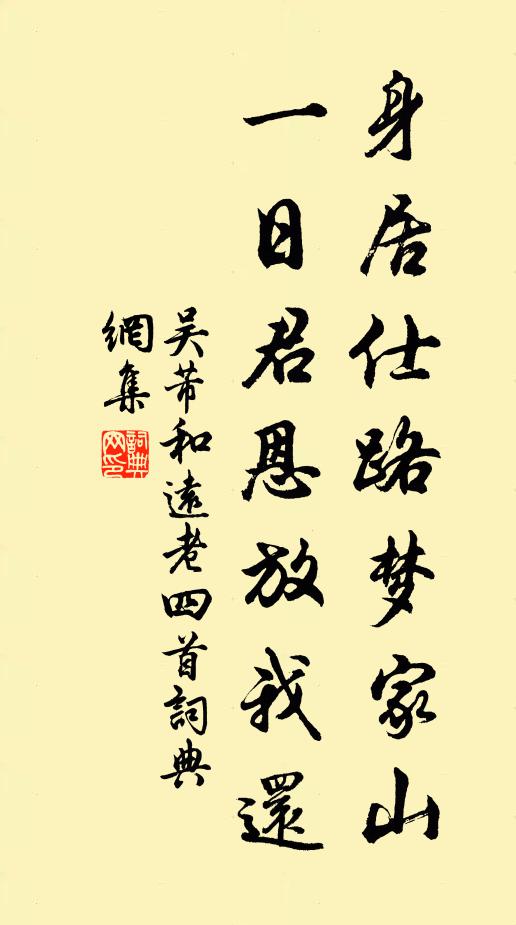 身居仕路梦家山
一日君恩放我還
吴芾和遠老四首詞典
網集
詞典网印